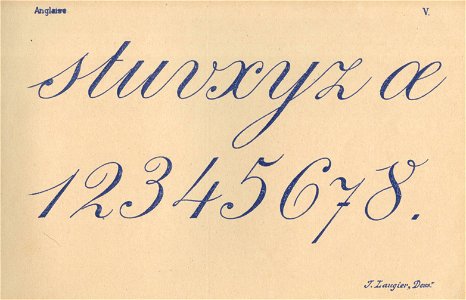 Anglaise. V.
stuvxyz œ
12345678.
J. Laugier, Dess.r